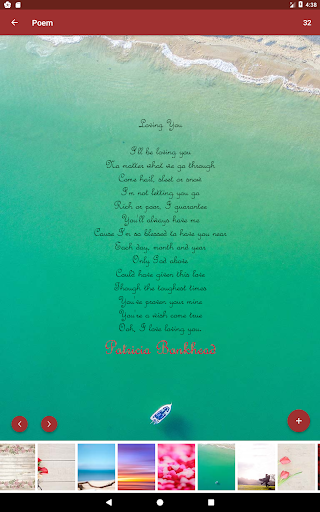 4:38
Poem
32
Loving You
I'll be loving you
No matter what we go through
Come hail, sleet or snow
I'm not letting you go
Rich or poor, I guarantee
You'll always have me
Cause I'm so blessed to have you near
Each day, month and year
Only God above
Could have given this love
Though the toughest times
You've proven your mine
You're a wish come true
Ooh, I love loving you